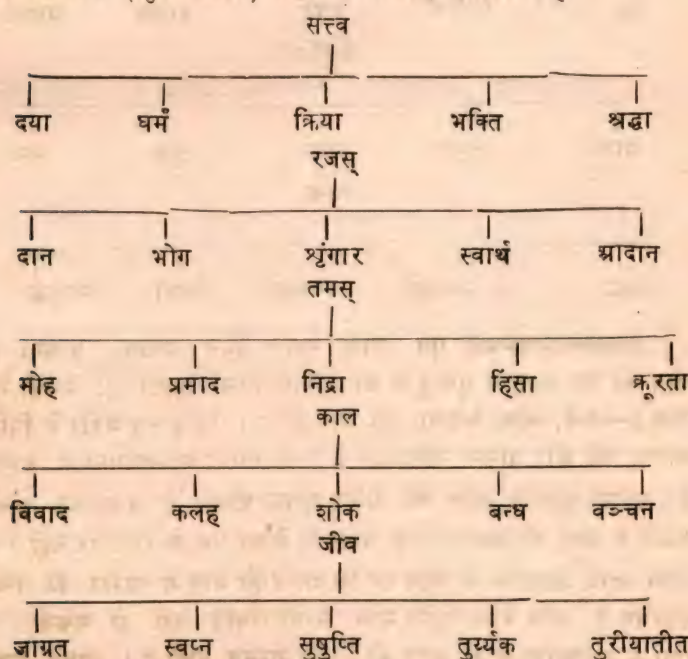 सत्त्व
दया घर्म क्रिया भक्ति श्रद्धा
रजस्
दान भोग शृंगार स्वार्थ आदान
तमस्
मोह प्रमाद निद्रा हिंसा क्रूरता
काल
विवाद कलह शोक बन्ध वञ्चन
जीव
जाग्रत स्वप्न सुषुप्ति तुर्य्यक तुरीयातीत